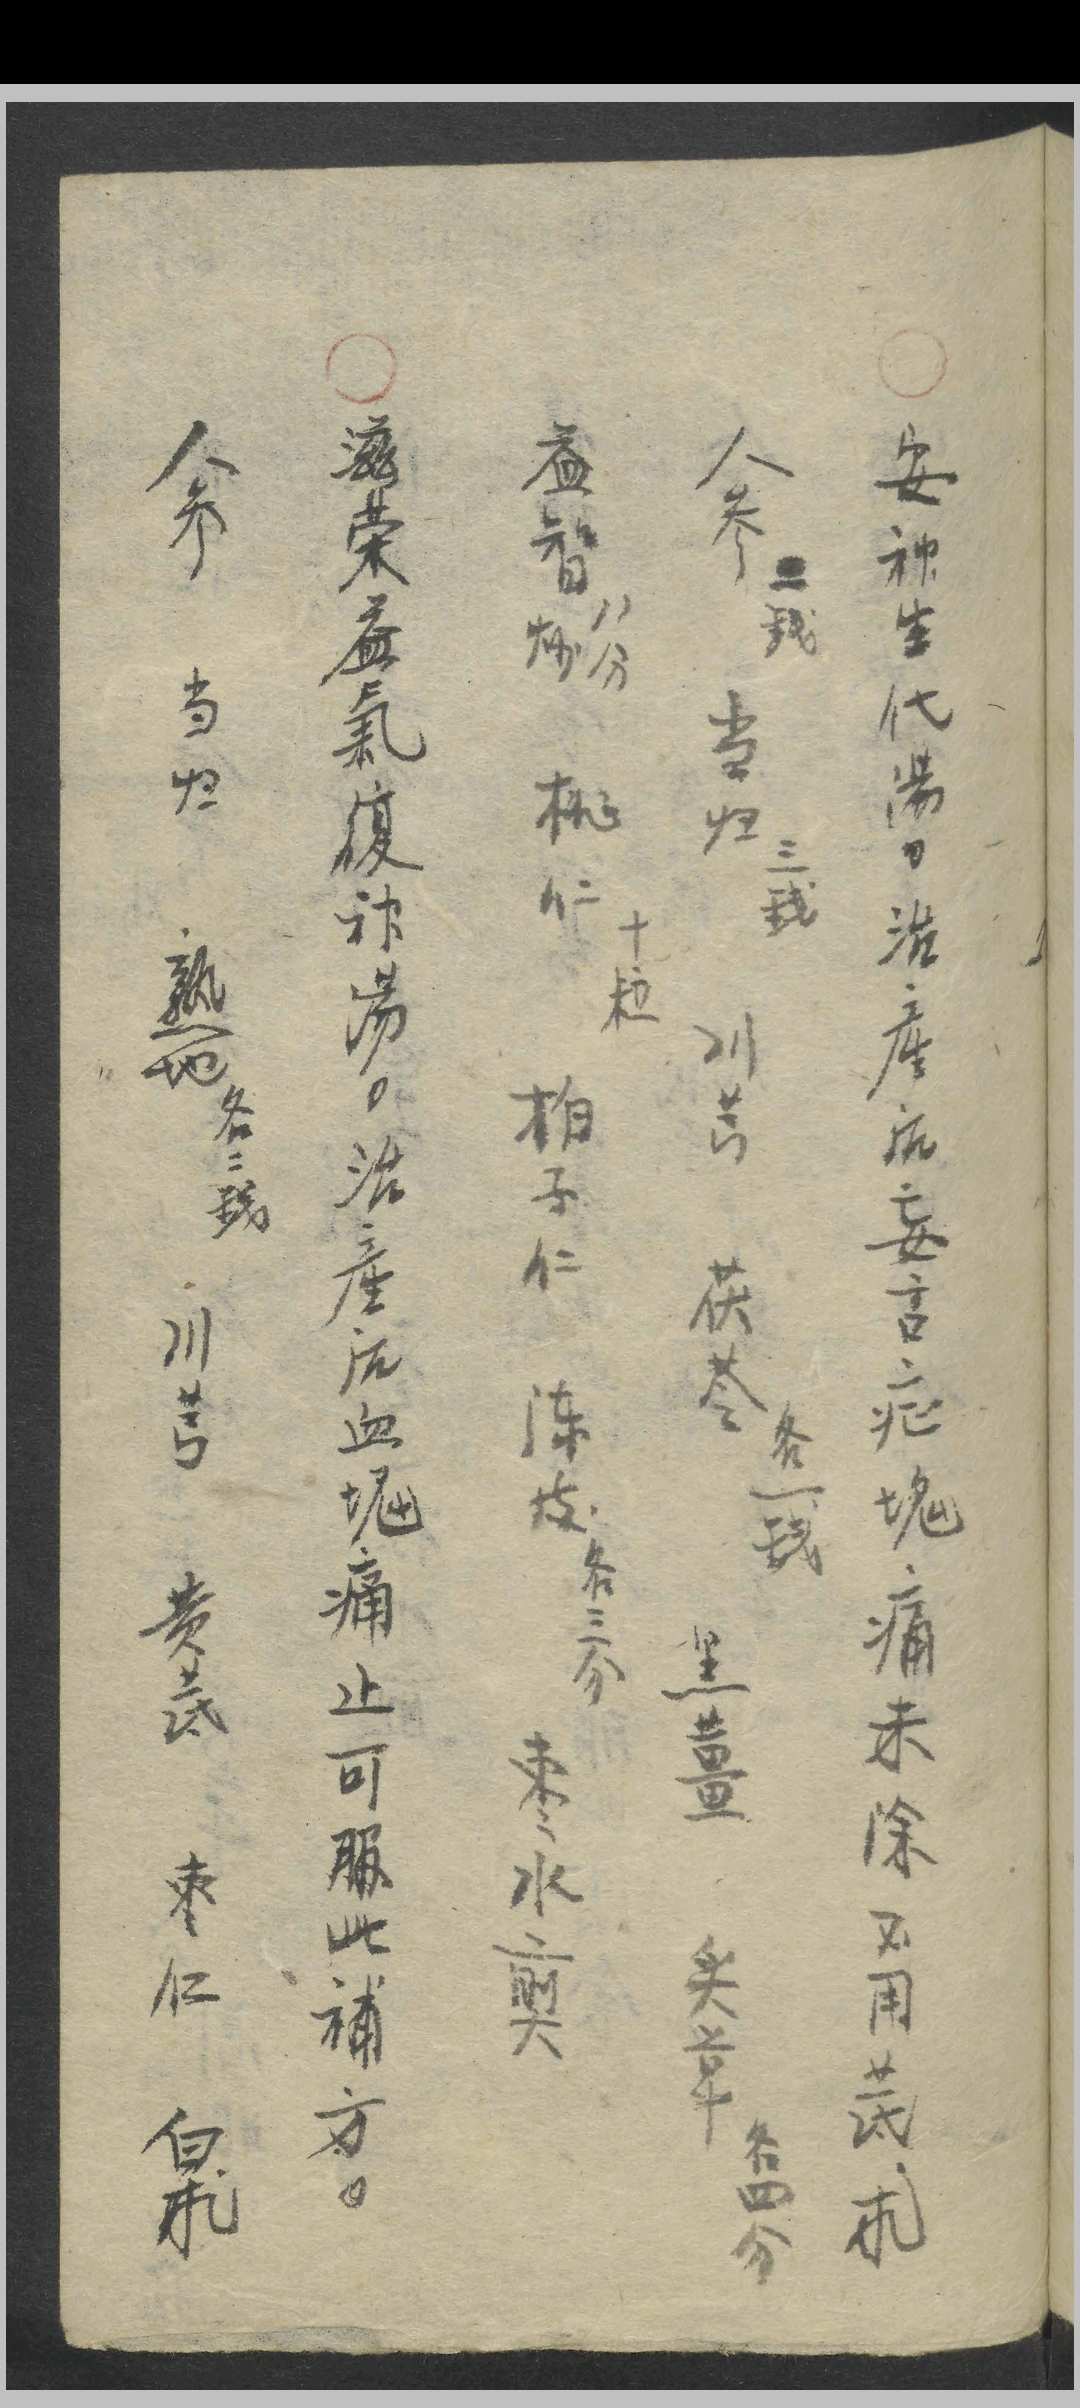 安神生化湯。治産后妄言症塊痛未除不用芪朮
人参二錢 当归三錢 川芎 茯苓各一錢 黑薑 炙草各四分
益智炒八分 桃仁十粒 柏子仁 陈皮各三分 枣水煎
滋荣益氣復神湯。治産后血塊痛止可服此補方。
人参 当归 熟地各二錢 川芎 黄芪 枣仁 白朮